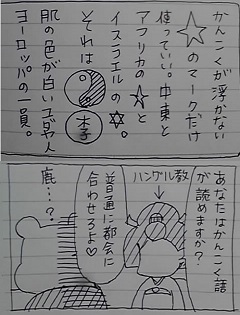 かんこくが浮かない
☆のマークだけ
使っていい。中東と
アフリカの☆と
イスラエルの✡。
それは
肌の色が白いユダヤ人
ヨーロッパの一員。
あなたはかんこく語
が読めますか?
ハングル教
普通に都会に
合わせろよ♡
鹿…?